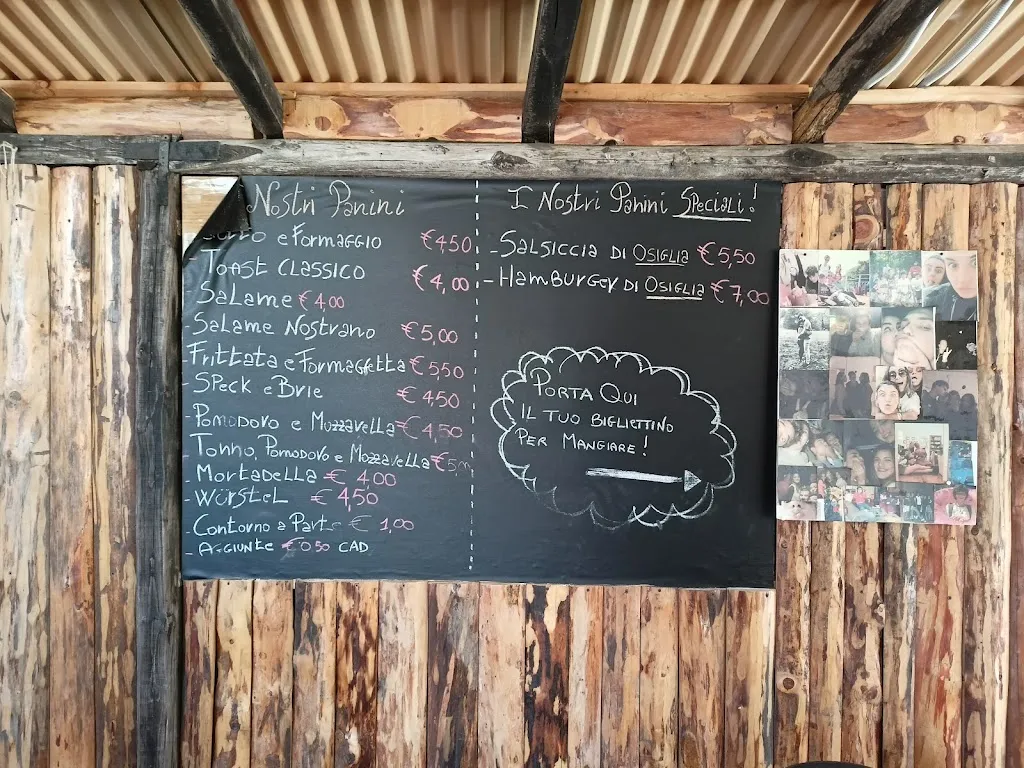 Nostri Panini
e Formaggio €4,50
Toast Classico €4,00
- Salame €4,00
- Salame Nostrano €5,00
- Frittata e Formaggetta €5,50
- Speck e Brie €4,50
- Pomodoro e Mozzarella €4,50
- Tonno, Pomodoro e Mozzarella
- Mortadella € 4,00
- Würstel € 4,50
Contorno a Parte € 1,00
- Aggiunte €0,50 CAD
I Nostri Panini Speciali!
- Salsiccia di Osiglia €5,50
- Hamburger di Osiglia €7,00
Porta Qui
il tuo bigliettino
per mangiare!